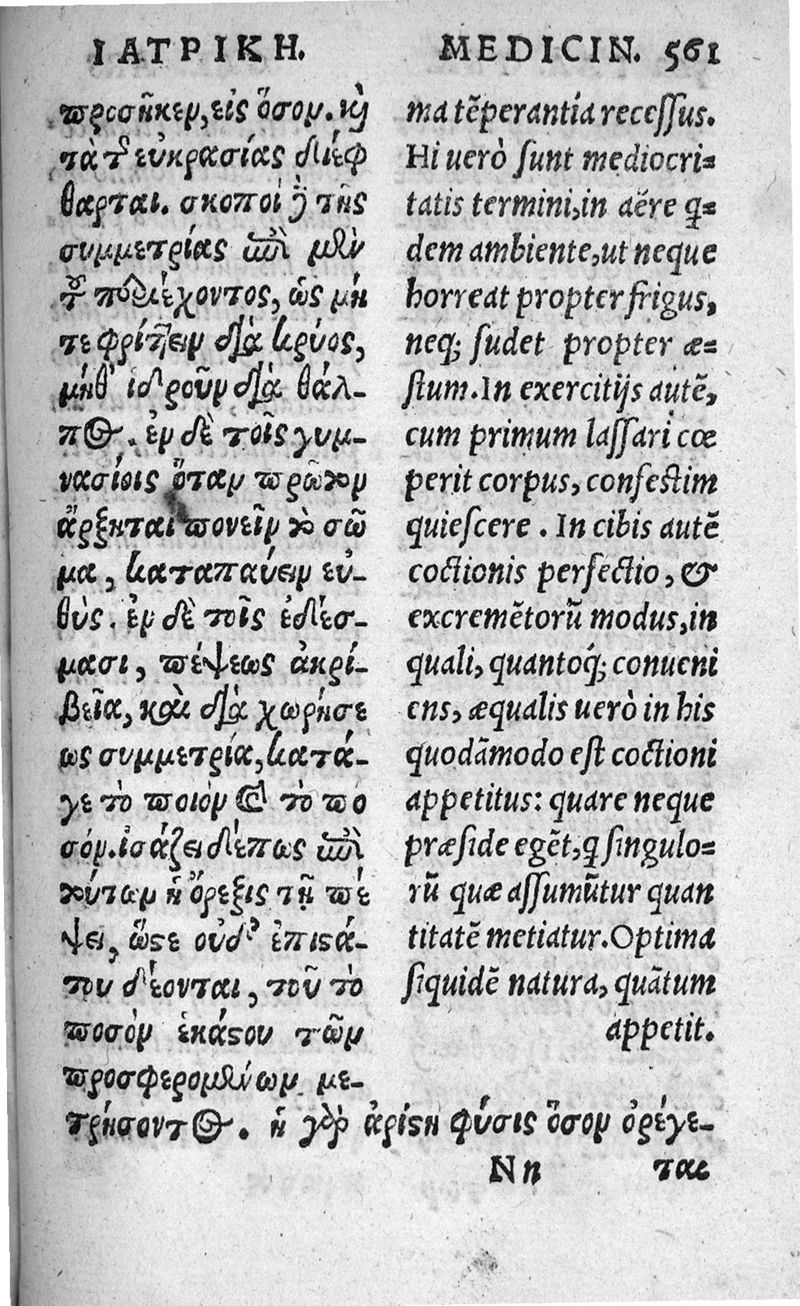 ΙΑΤΡΙΚΗ.
προσῆκεν, εἰς ὅσον. καὶ
τὰ τῆς εὐκρασίας διέφ
θαρται. σκοποὶ δὲ τῆς
συμμετρίας ἐπὶ μὲν
τοῦ περιέχοντος, ὡς μή
τε φρίττειν διὰ κρύος,
μήθ' ἱδροῦν διὰ θάλ-
πος. ἐν δὲ τοῖς γυμ-
νασίοις ὅταν πρῶτον
ἄρξηται πονεῖν τὸ σῶ
μα, καταπαύειν εὐ-
θύς. ἐν δὲ τοῖς ἐδέσ-
μασι, πέψεως ἀκρί-
βεῖα, καὶ διὰ χωρήσε
ως συμμετρία, κατά-
γε τὸ ποιὸν καὶ τὸ πο
σόν. ἰσάζει δέπως ἐπὶ
τούτων ἡ ὄρεξις τῇ πέ
ψει, ὥστε οὐδ' ἐπιστά-
του δέονται, τοῦ τὸ
ποσὸν ἑκάστου τῶν
προσφερομένων με-
τρήσοντος. ἡ γὰρ ἀρίστη φύσις ὅσον ὀρέγε-
MEDICIN. 561
ma tēperantia recessus.
Hi uerò sunt mediocri=
tatis termini, in aëre q̄=
dem ambiente, ut neque
horreat propter frigus,
neq; sudet propter æ=
stum. In exercitijs autē,
cum primum lassari cœ
perit corpus, confestim
quiescere. In cibis autē
coctionis perfectio, &
excremētorũ modus, in
quali, quantoq́; conueni
ens, æqualis uerò in his
quodāmodo est coctioni
appetitus: quare neque
præside egēt, q singulo=
rũ quæ assumũtur quan
titatē metiatur. Optima
siquidē natura, quātum
appetit.
Nn
ται